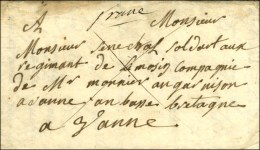 franc
A Monsieur
Monsieur Senechal soldart aux
regimant de Limosin Compagnie
de Mr monnier au garnison
a vanne an basse bretagne
a Vanne